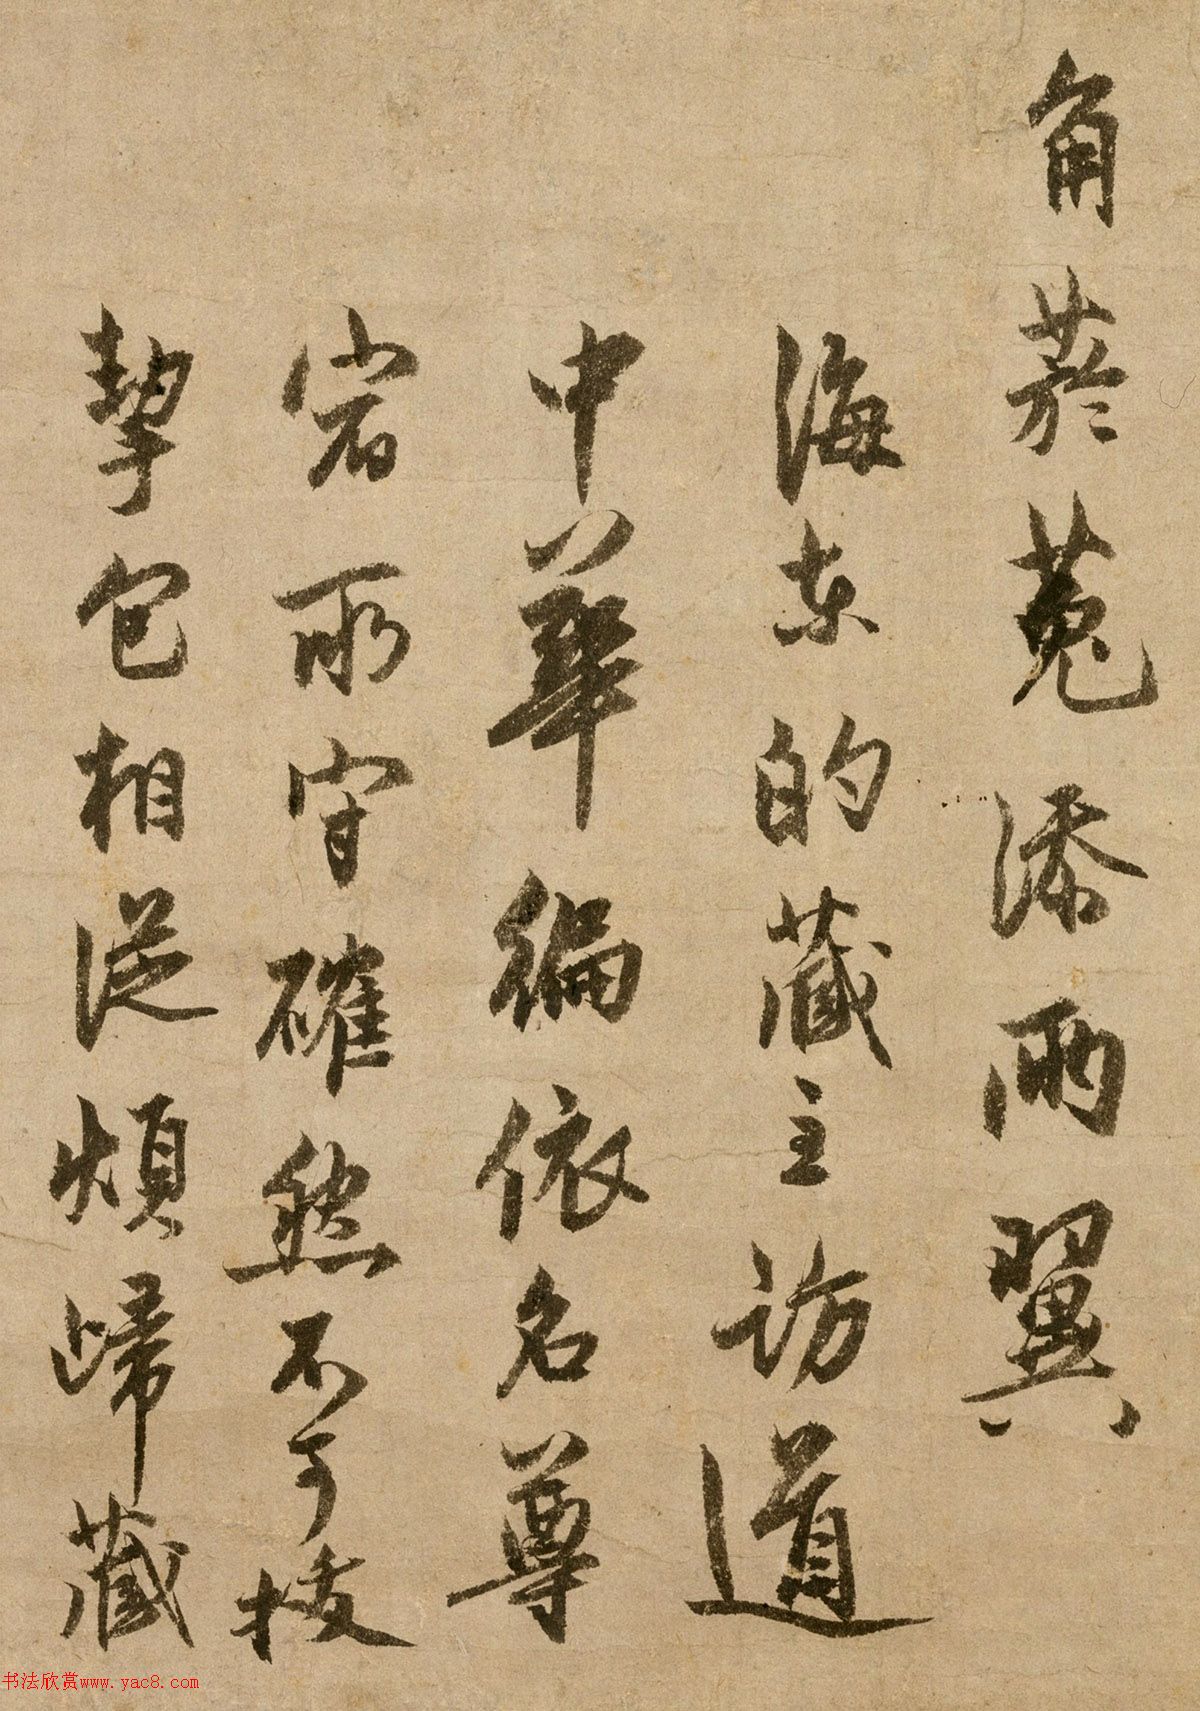 角菸菟添兩翼
海东的藏主訪道
中華徧依名尊
宿所守確然不可拔
挈包相從煩歸藏
书法欣赏www.yac8.com